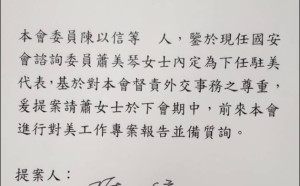 本會委員陳以信等 人，鑒於現任國安
會諮詢委員蕭美琴女士內定為下任駐美
代表，基於對本會督責外交事務之尊重，
爰提案請蕭女士於下會期中，前來本會
進行對美工作專案報告並備質詢。
提案人：